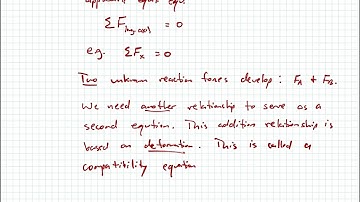 ΣF = 0
e.g. ΣFx = 0
Two unknown reaction forces develop: FA + FB.
We need another relationship to serve as a
second equation. This addition relationship is
based on deformation. This is called a
compatibility equation